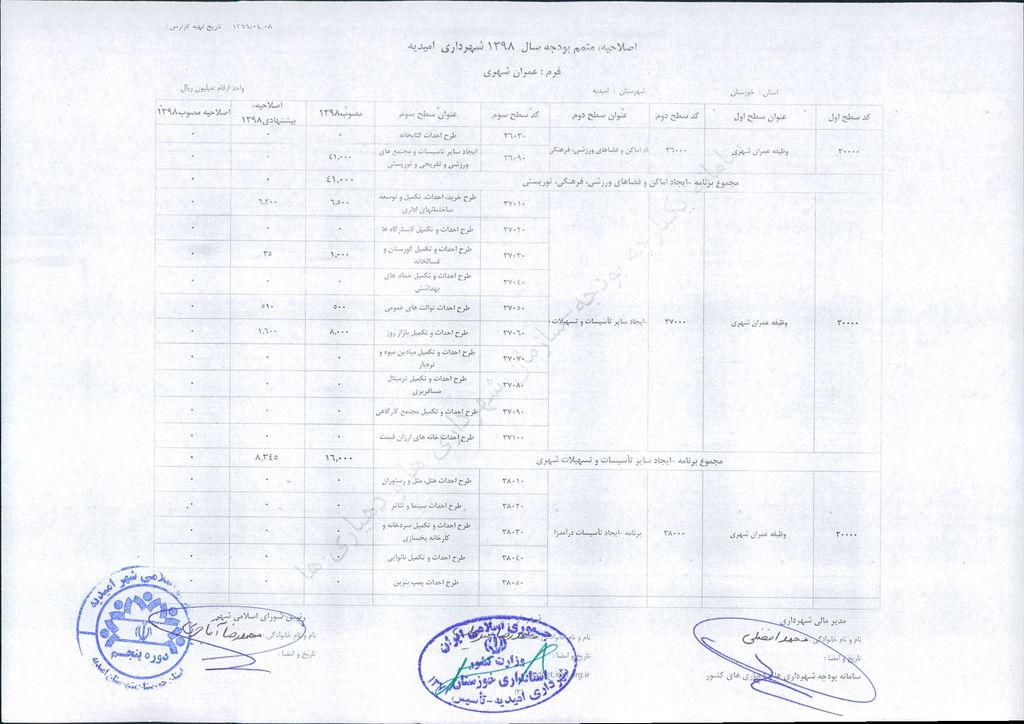 ۱۳۹۹/۰۴/۰۸ تاریخ تهیه گزارش :
اصلاحیه، متمم بودجه سال ۱۳۹۸ شهرداری امیدیه
فرم : عمران شهری
استان : خوزستان شهرستان : امیدیه واحد ارقام :میلیون ریال
کد سطح اول عنوان سطح اول کد سطح دوم عنوان سطح دوم کد سطح سوم عنوان سطح سوم مصوب۱۳۹۸ اصلاحیه، پیشنهادی۱۳۹۸ اصلاحیه مصوب۱۳۹۸
۳۶۰۳۰ طرح احداث کتابخانه ۰ ۰ ۰
۳۰۰۰۰ وظیفه عمران شهری ۳۶۰۰۰ اماکن و فضاهای ورزشی، فرهنگی
۳۶۰۹۰ ایجاد سایر تاسیسات و مجتمع های ورزشی و تفریحی و توریستی ۴۱,۰۰۰ ۰ ۰
مجموع برنامه -ایجاد اماکن و فضاهای ورزشی، فرهنگی، توریستی ۴۱,۰۰۰ ۰ ۰
۳۷۰۱۰ طرح خرید، احداث، تکمیل و توسعه ساختمانهای اداری ۶,۵۰۰ ۶,۲۰۰ ۰
۳۷۰۲۰ طرح احداث و تکمیل کشتارگاه ها ۰ ۰ ۰
۳۷۰۳۰ طرح احداث و تکمیل گورستان و غسالخانه ۱,۰۰۰ ۳۵ ۰
۳۷۰۴۰ طرح احداث و تکمیل حمام های بهداشتی ۰ ۰ ۰
۳۷۰۵۰ طرح احداث توالت های عمومی ۵۰۰ ۵۱۰ ۰
۳۰۰۰۰ وظیفه عمران شهری ۳۷۰۰۰ -ایجاد سایر تأسیسات و تسهیلات
۳۷۰۶۰ طرح احداث و تکمیل بازار روز ۸,۰۰۰ ۱,۶۰۰ ۰
۳۷۰۷۰ طرح احداث و تکمیل میادین میوه و تره‌بار ۰ ۰ ۰
۳۷۰۸۰ طرح احداث و تکمیل ترمینال مسافربری ۰ ۰ ۰
۳۷۰۹۰ طرح احداث و تکمیل مجتمع کارگاهی ۰ ۰ ۰
۳۷۱۰۰ طرح احداث خانه های ارزان قیمت ۰ ۰ ۰
مجموع برنامه -ایجاد سایر تأسیسات و تسهیلات شهری ۱۶,۰۰۰ ۸,۳۴۵ ۰
۳۸۰۱۰ طرح احداث هتل، متل و رستوران ۰ ۰ ۰
۳۸۰۲۰ طرح احداث سینما و تئاتر ۰ ۰ ۰
۳۰۰۰۰ وظیفه عمران شهری ۳۸۰۰۰ برنامه -ایجاد تأسیسات درآمدزا
۳۸۰۳۰ طرح احداث و تکمیل سردخانه و کارخانه یخسازی ۰ ۰ ۰
۳۸۰۴۰ طرح احداث و تکمیل نانوایی ۰ ۰ ۰
۳۸۰۵۰ طرح احداث پمپ بنزین ۰ ۰ ۰
سامانه یکپارچه بودجه - سازمان شهرداری ها و دهیاری ها
مدیر مالی شهرداری
نام و نام خانوادگی : محمد افضلی
تاریخ و امضا :
سامانه بودجه شهرداری ها و دهیاری های کشور
نام و نام خانوادگی محمدرضا
تاریخ و امضا :
جمهوری اسلامی ایران
وزارت کشور
استانداری خوزستان
شهرداری امیدیه - تأسیس
رئیس شورای اسلامی شهر
نام و نام خانوادگی : محمدرضا آغاجری
تاریخ و امضا :
اسلامی شهر امیدیه
دوره پنجم